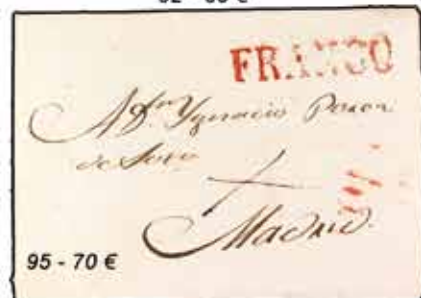 FRANCO
A Dⁿ Ygnacio
de Soto
Madrid.
95 - 70 €